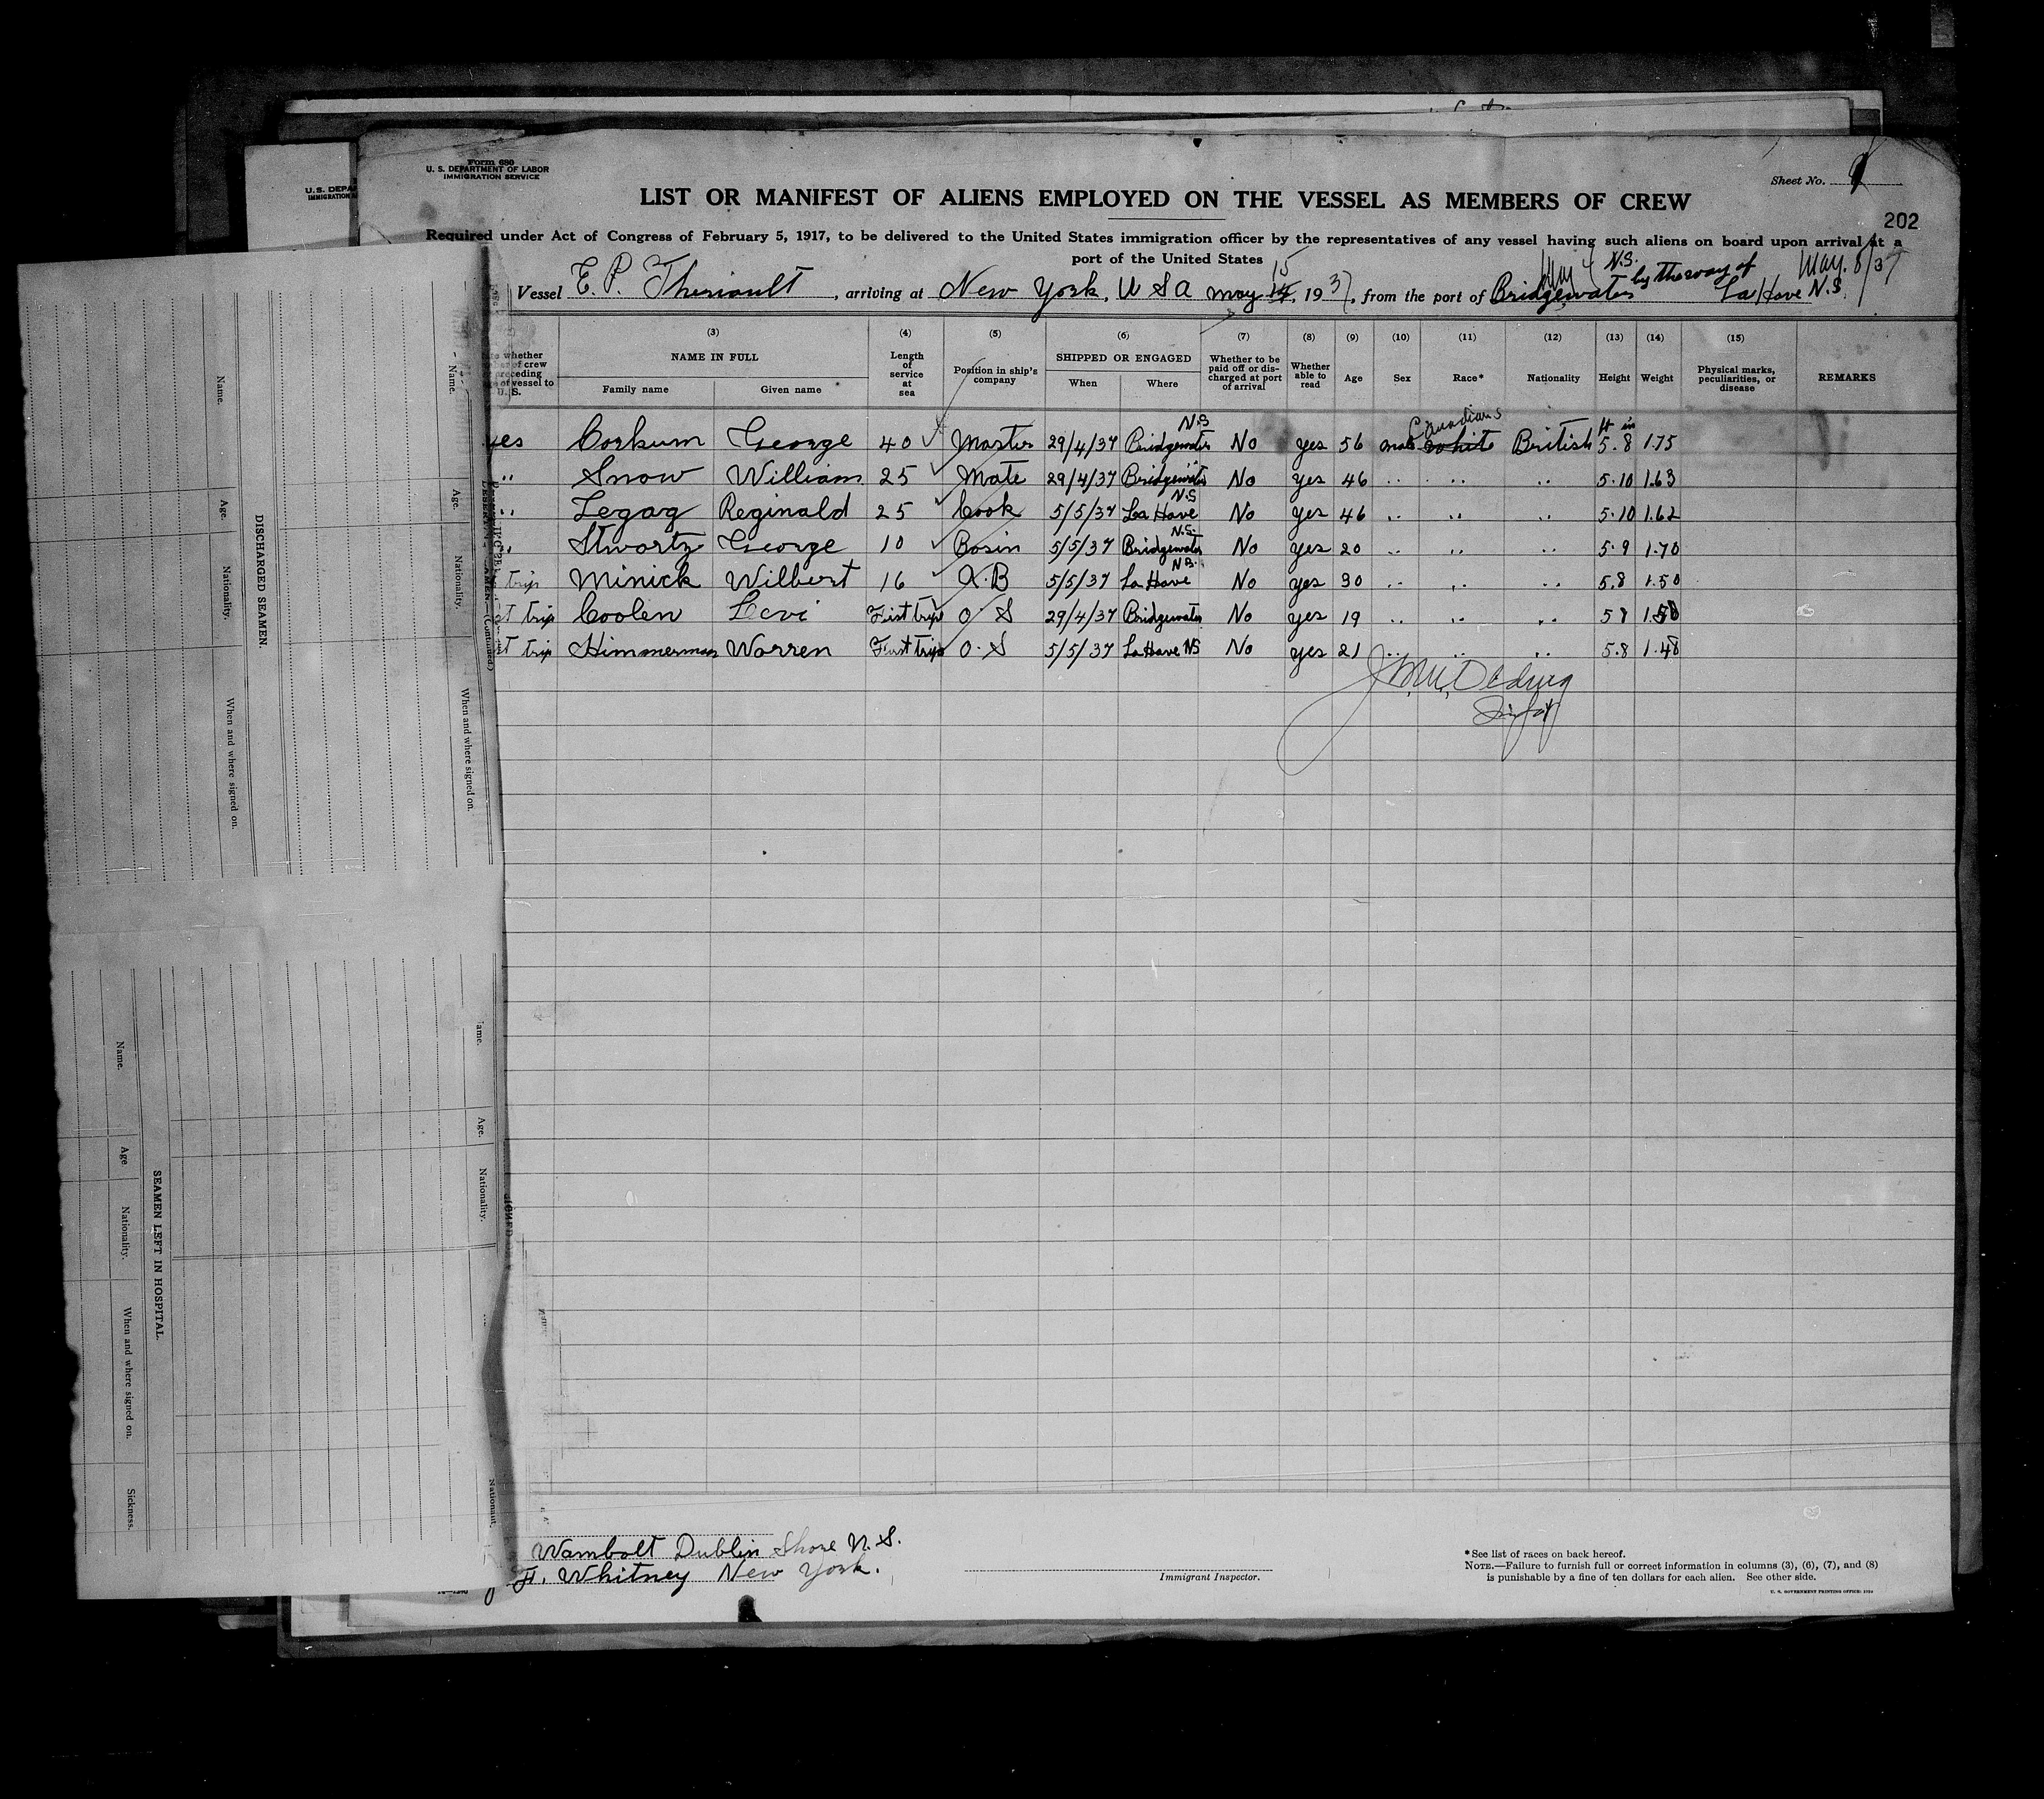 Form 680
U. S. DEPARTMENT OF LABOR
IMMIGRATION SERVICE
U. S. DEPA
IMMIGRATION
Sheet No.
LIST OR MANIFEST OF ALIENS EMPLOYED ON THE VESSEL AS MEMBERS OF CREW
202
Required under Act of Congress of February 5, 1917, to be delivered to the United States immigration officer by the representatives of any vessel having such aliens on board upon arrival at a
port of the United States
Vessel E. P. Theriault, arriving at New York, U S A May 15 14, 1937, from the port of Bridgewater N.S. May 4 by the way of La Have N.S. May. 8/37
(3) (4) (5) (6) (7) (8) (9) (10) (11) (12) (13) (14) (15)
whether of crew preceding of vessel to U. S.
NAME IN FULL
Family name
Given name
Length of service at sea
Position in ship's company
SHIPPED OR ENGAGED
When
Where
Whether to be paid off or discharged at port of arrival
Whether able to read
Age
Sex
Race*
Nationality
Height
Weight
Physical marks, peculiarities, or disease
REMARKS
yes Corkum George 40 Master 29/4/37 Bridgewater N.S No yes 56 male white Canadians British 5 ft 8 in 1.75
" Snow William 25 Mate 29/4/37 Bridgewater " No yes 46 " " " 5.10 1.63
" Zegag Reginald 25 Cook 5/5/37 La Have N.S No yes 46 " " " 5.10 1.62
" Stwartz George 10 Bosin 5/5/37 Bridgewater N.S. No yes 20 " " " 5.9 1.70
trip Minick Wilbert 16 A.B 5/5/37 La Have N.S. No yes 30 " " " 5.8 1.50
st trip Coolen Levi First trip O S 29/4/37 Bridgewater No yes 19 " " " 5 8
st trip Himmerman Warren First trip O.S 5/5/37 La Have NS No yes 21 " " " 5.8 1.48
Wambolt Dublin Shore N.S.
Whitney New York.
Immigrant Inspector.
*See list of races on back hereof.
NOTE.—Failure to furnish full or correct information in columns (3), (6), (7), and (8)
is punishable by a fine of ten dollars for each alien. See other side.
U. S. GOVERNMENT PRINTING OFFICE
DISCHARGED SEAMEN.
Name.
Age.
Nationality.
When and where signed on.
Name.
Age.
Nationality.
When and where signed on.
SEAMEN LEFT IN HOSPITAL.
Name.
Age
Nationality.
When and where signed on.
Sickness.
ame.
Age.
Nationality.